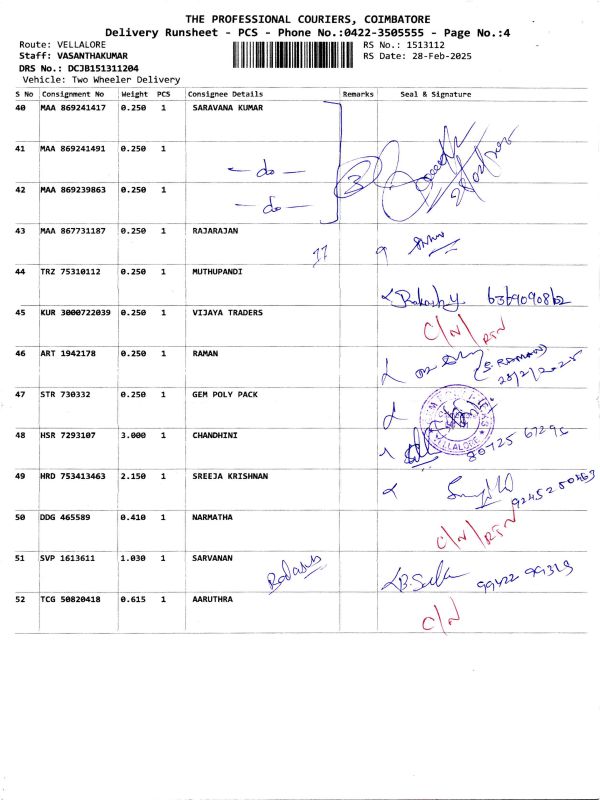 THE PROFESSIONAL COURIERS, COIMBATORE
Delivery Runsheet - PCS - Phone No.:0422-3505555 - Page No.:4
Route: VELLALORE RS No.: 1513112
Staff: VASANTHAKUMAR RS Date: 28-Feb-2025
DRS No.: DCJB151311204
Vehicle: Two Wheeler Delivery
S No Consignment No Weight PCS Consignee Details Remarks Seal & Signature
40 MAA 869241417 0.250 1 SARAVANA KUMAR
41 MAA 869241491 0.250 1
— do —
3
42 MAA 869239863 0.250 1
— do —
43 MAA 867731187 0.250 1 RAJARAJAN
44 TRZ 75310112 0.250 1 MUTHUPANDI
6369090862
45 KUR 3000722039 0.250 1 VIJAYA TRADERS
C/N/RTN
46 ART 1942178 0.250 1 RAMAN
(S. RAMAN)
28/2/2025
47 STR 730332 0.250 1 GEM POLY PACK
VELLALORE
48 HSR 7293107 3.000 1 CHANDHINI
49 HRD 753413463 2.150 1 SREEJA KRISHNAN
9245250463
50 DDG 465589 0.410 1 NARMATHA
C/N/RTN
51 SVP 1613611 1.030 1 SARVANAN
99422 99313
52 TCG 50820418 0.615 1 AARUTHRA
C/N